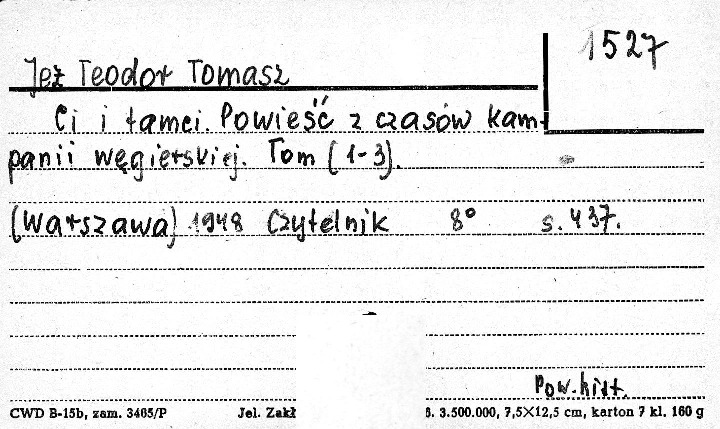 1527
Jeż Teodor Tomasz
Ci i tamci. Powieść z czasów kam-
panii węgierskiej. Tom (1-3).
(Warszawa) 1948 Czytelnik 8° s. 437.
Pow. hist.
CWD B-15b, zam. 3465/P Jel. Zakł 3.500.000, 7,5×12,5 cm, karton 7 kl. 160 g